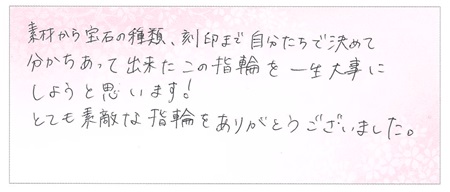 素材から宝石の種類、刻印まで自分たちで決めて
分かちあって出来たこの指輪を一生大事に
しようと思います!
とても素敵な指輪をありがとうございました。